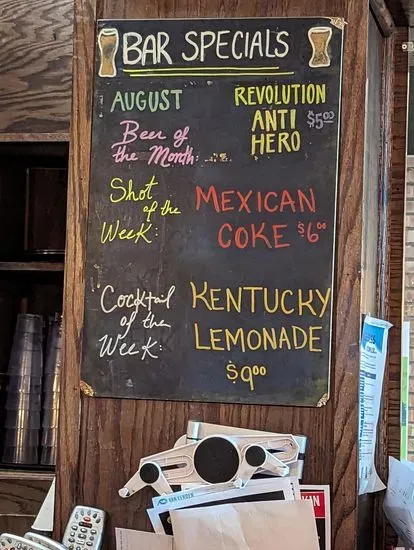 BAR SPECIALS
AUGUST
Beer of
the Month:
REVOLUTION
ANTI
HERO
$5.00
Shot
of the
Week:
MEXICAN
COKE $6.00
Cocktail
of the
Week:
KENTUCKY
LEMONADE
$9.00